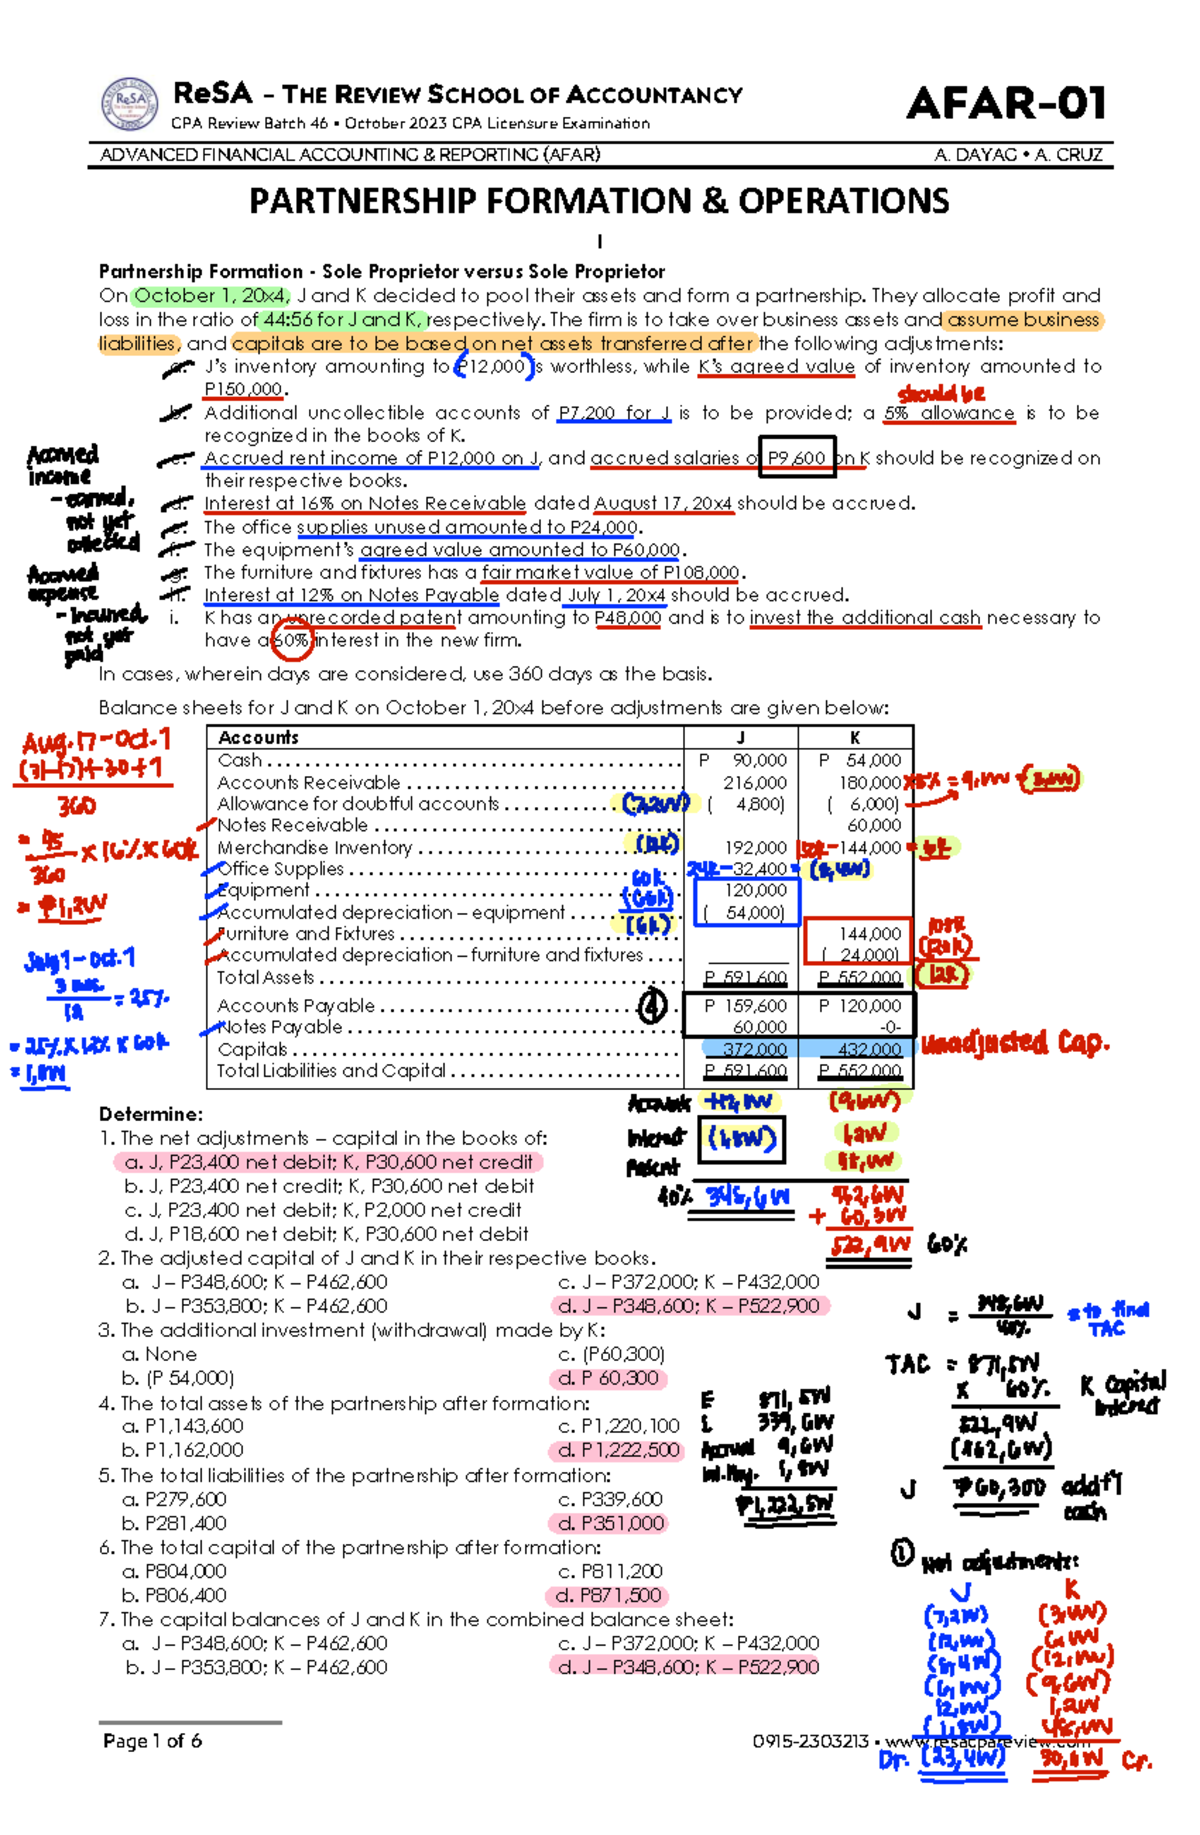 ReSA – THE REVIEW SCHOOL OF ACCOUNTANCY
CPA Review Batch 46 ▪ October 2023 CPA Licensure Examination
AFAR-01
ADVANCED FINANCIAL ACCOUNTING & REPORTING (AFAR) A. DAYAG • A. CRUZ
PARTNERSHIP FORMATION & OPERATIONS
I
Partnership Formation - Sole Proprietor versus Sole Proprietor
On October 1, 20x4, J and K decided to pool their assets and form a partnership. They allocate profit and
loss in the ratio of 44:56 for J and K, respectively. The firm is to take over business assets and assume business
liabilities, and capitals are to be based on net assets transferred after the following adjustments:
a. J's inventory amounting to P12,000 is worthless, while K's agreed value of inventory amounted to
P150,000.
should be
b. Additional uncollectible accounts of P7,200 for J is to be provided; a 5% allowance is to be
recognized in the books of K.
c. Accrued rent income of P12,000 on J, and accrued salaries of P9,600 on K should be recognized on
their respective books.
d. Interest at 16% on Notes Receivable dated August 17, 20x4 should be accrued.
e. The office supplies unused amounted to P24,000.
f. The equipment's agreed value amounted to P60,000.
g. The furniture and fixtures has a fair market value of P108,000.
h. Interest at 12% on Notes Payable dated July 1, 20x4 should be accrued.
i. K has an unrecorded patent amounting to P48,000 and is to invest the additional cash necessary to
have a 60% interest in the new firm.
Accrued
income
- earned,
not yet
collected
Accrued
expense
- incurred,
not yet
paid
In cases, wherein days are considered, use 360 days as the basis.
Balance sheets for J and K on October 1, 20x4 before adjustments are given below:
Accounts J K
Cash P 90,000 P 54,000
Accounts Receivable 216,000 180,000
Allowance for doubtful accounts (7,200) ( 4,800) ( 6,000)
Notes Receivable 60,000
Merchandise Inventory (12k) 192,000 150k - 144,000 = 6k
Office Supplies 24k - 32,400 = (8,400)
Equipment 60k 120,000
Accumulated depreciation – equipment (66k) ( 54,000)
(6k)
Furniture and Fixtures 144,000 108k
Accumulated depreciation – furniture and fixtures ( 24,000) (120k)
Total Assets P 591,600 P 552,000 (12k)
Accounts Payable ④ P 159,600 P 120,000
Notes Payable 60,000 -0-
Capitals 372,000 432,000 Unadjusted Cap.
Total Liabilities and Capital P 591,600 P 552,000
Aug. 17 - Oct. 1
(31-17)+30+1
360
= 45
360
x 16% x 60k
= ₱1,200
July 1 - Oct. 1
3 mos.
12
= 25%
= 25% x 12% x 60k
= 1,800
Accruals +12,000 (9,600)
Interest (1,800) 1,200
Patent 48,000
40% 348,600 462,600
+ 60,300
522,900 60%
Determine:
1. The net adjustments – capital in the books of:
a. J, P23,400 net debit; K, P30,600 net credit
b. J, P23,400 net credit; K, P30,600 net debit
c. J, P23,400 net debit; K, P2,000 net credit
d. J, P18,600 net debit; K, P30,600 net debit
2. The adjusted capital of J and K in their respective books.
a. J – P348,600; K – P462,600 c. J – P372,000; K – P432,000
b. J – P353,800; K – P462,600 d. J – P348,600; K – P522,900
3. The additional investment (withdrawal) made by K:
a. None c. (P60,300)
b. (P 54,000) d. P 60,300
4. The total assets of the partnership after formation:
a. P1,143,600 c. P1,220,100
b. P1,162,000 d. P1,222,500
5. The total liabilities of the partnership after formation:
a. P279,600 c. P339,600
b. P281,400 d. P351,000
6. The total capital of the partnership after formation:
a. P804,000 c. P811,200
b. P806,400 d. P871,500
7. The capital balances of J and K in the combined balance sheet:
a. J – P348,600; K – P462,600 c. J – P372,000; K – P432,000
b. J – P353,800; K – P462,600 d. J – P348,600; K – P522,900
E 871,500
L 339,600
Accrual 9,600
Int. Pay. 1,800
₱1,222,500
J = 348,600
40%
= to final
TAC
TAC = 871,500
x 60%
K Capital
Interest
522,900
(462,600)
J ₱60,300 addt'l
cash
① Net adjustments:
J K
(7,200) (3,000)
(12,000) 6,000
(8,400) (12,000)
(6,000) (9,600)
12,000 1,200
(1,800) 48,000
Dr. (23,400) 30,600 Cr.
Page 1 of 6 0915-2303213 ▪ www.resacpareview.com